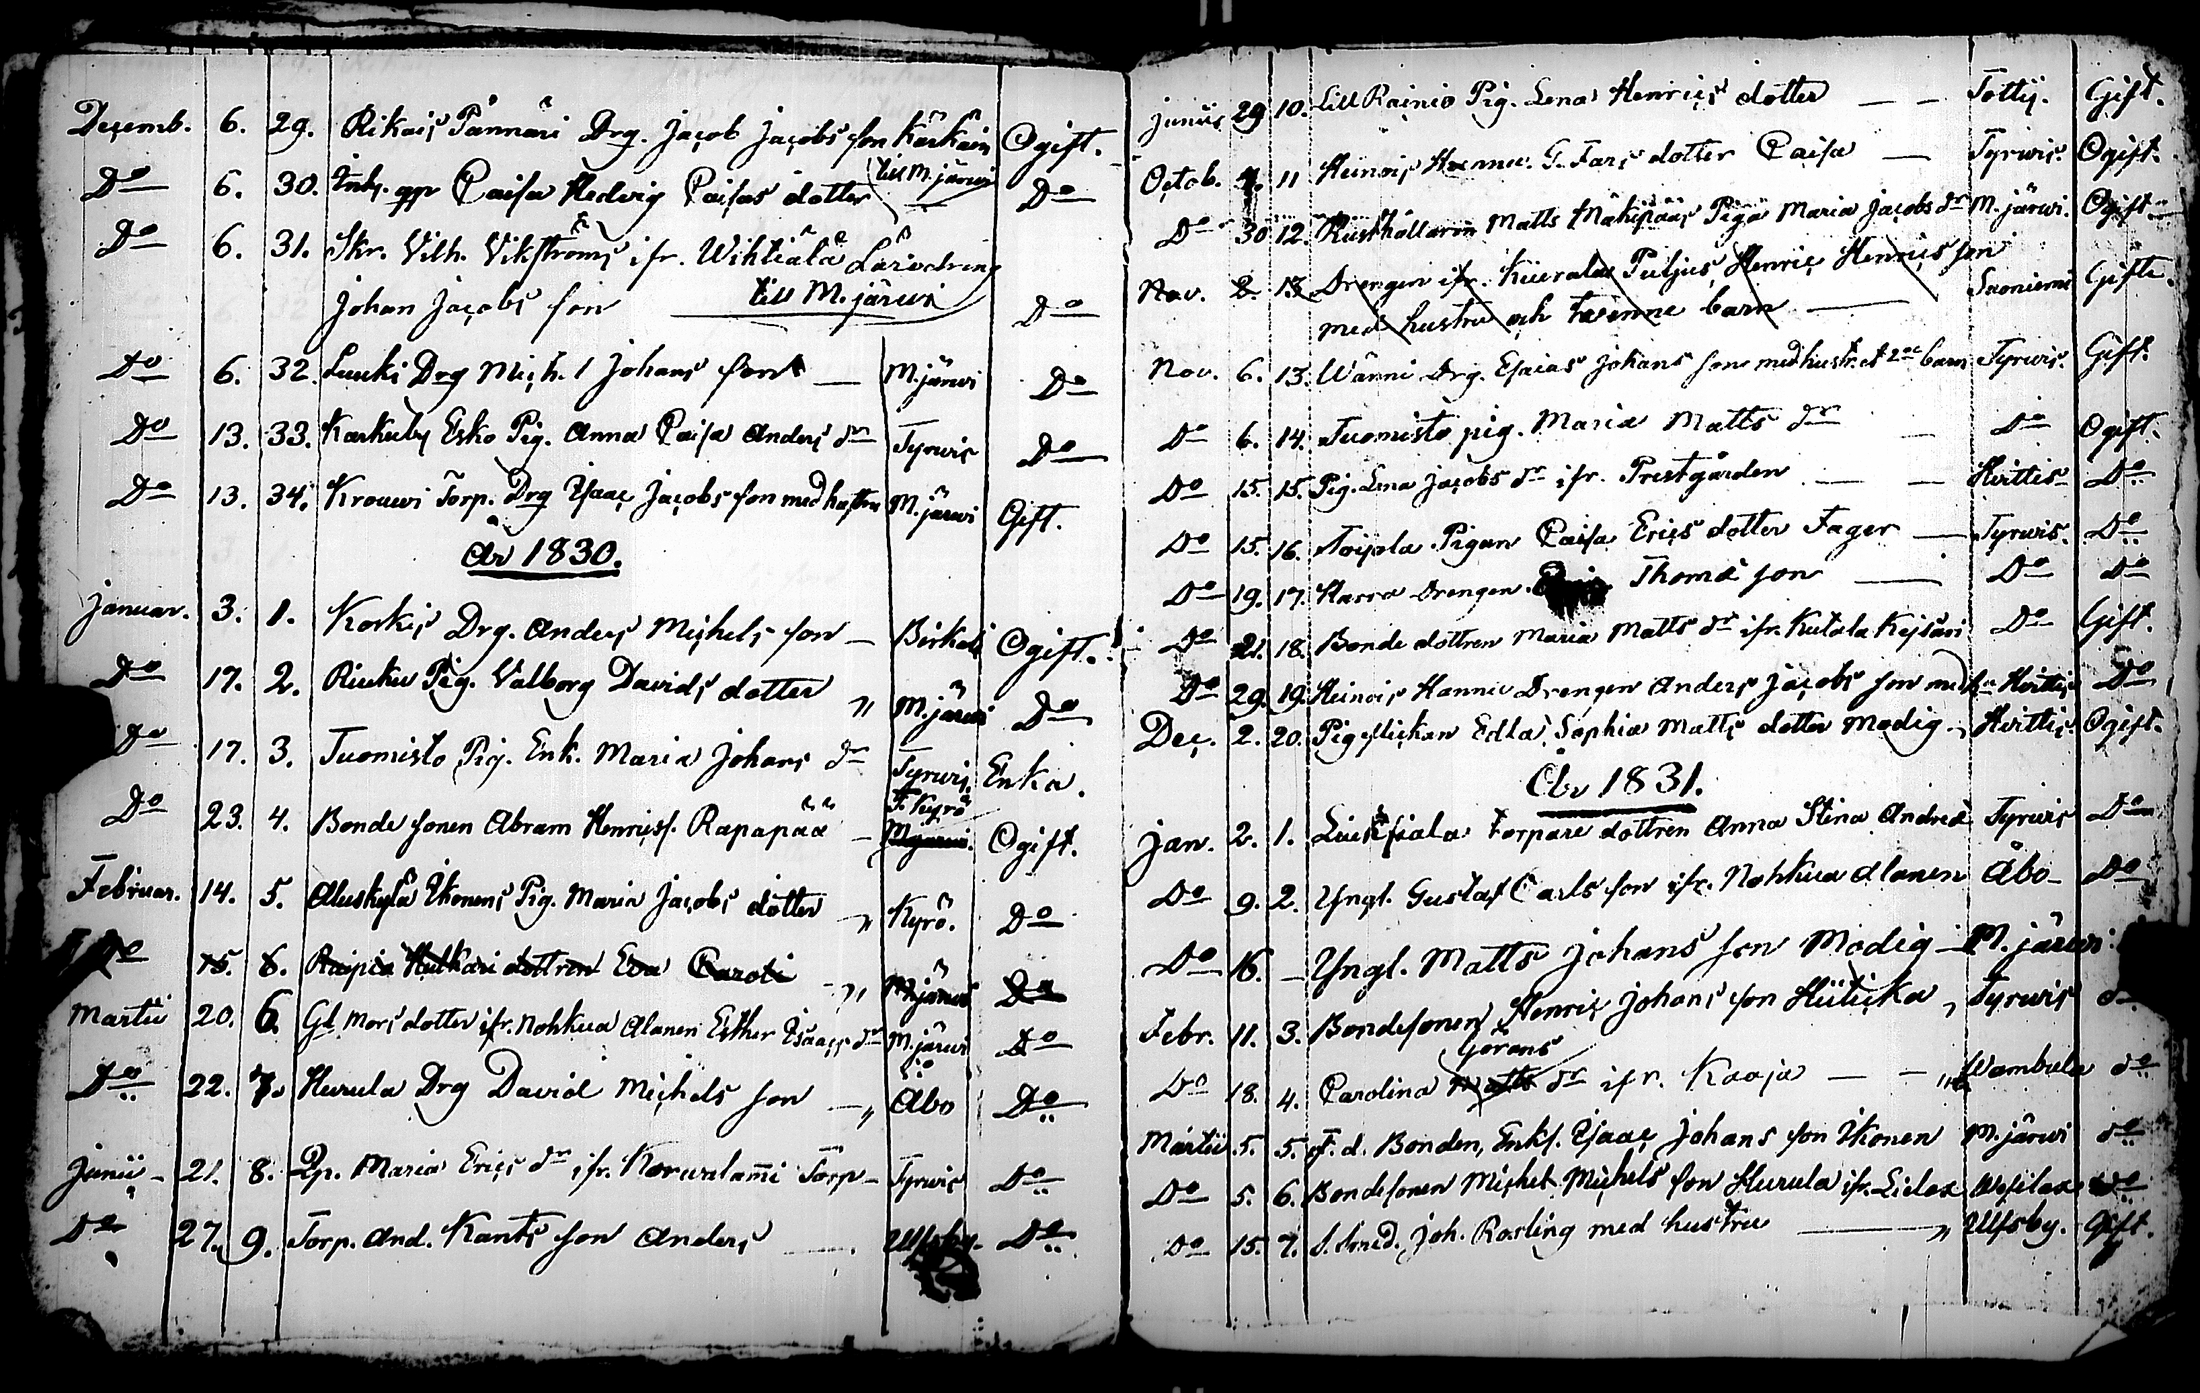 Decemb. 6. 29. Rikais Pånnäri Drg. Jacob Jacobs son Kärkäin Ogift.
Do 6. 30. Inh. gp Caisa Hedvig Caisas dotter till M.järvi Do
Do 6. 31. Skr. Vilh. Vikströms ifr. Wihtiälä Läriodreng
Johan Jacobs son till M.järwi Do
Do 6. 32. Luuki Drg Mich. Johans son — M.järwi Do
Do 13. 33. Karkuby Esko Pig. Anna Caisa Anders dr Tyrwis Do
Do 13. 34. Krouwi Torp. Drg Ysaac Jacobs son med hustru M.järwi Gift.
År 1830.
Januar. 3. 1. Korkis Drg. Anders Michels son — Birkala Ogift.
Do 17. 2. Rieku Pig. Valborg Davids dotter " M.järwi Do
Do 17. 3. Tuomisto Pig. Enk. Maria Johans dr Tyrwis Enka.
Do 23. 4. Bonde sonen Abram Henricss. Rapapää — T. Kyrö Ogift.
Februar. 14. 5. Aluskylä Ikonens Pig. Maria Jacobs dotter " Kyrö. Do
Do 15. 6. Raipia Hulkari dottren Eva Caroli " M.järwi Do
Martii 20. 6. Gl. Mors dotter ifr. Nohkua Alanen Esther Isaacs dr M.järwi Do
Do 22. 7. Hurula Drg David Michels son — " Åbo Do
Junii – 21. 8. Qp. Maria Erics dr ifr. Korwalami Torp – Tyrwis Do
Do 27. 9. Torp. And. Kants son Anders — Ulfsby. Do
Junii 29 10. Lill Rainio Pig. Lena Henrics dotter — — Tottij. Gift.
Octob. 4. 11 Heinois Hannu G. Fars dotter Caisa — Tyrwis. Ogift.
Do 30 12. Rusthållaren Matts Mäkipääs Piga Maria Jacobs dr M.järwi. Ogift
Nov. 2. 13. Drengen ifr. Kiurala Puljus Henric Henrics son
med hustru och twenne barn — Suoniemi Gifte.
Nov. 6. 13. Wänni Drg. Esaias Johans son med hustr. et 2ne barn Tyrwis. Gift.
Do 6. 14. Tuomisto pig. Maria Matts dr — Do Ogift.
Do 15. 15. Pig. Lena Jacobs dr ifr. Prestgården — — Hvittis Do
Do 15. 16. Toipola Pigan Caisa Erics dotter Fager — Tyrwis. Do
Do 19. 17. Harra Drengen Thomæ son — Do Do
Do 21. 18. Bonde dottren Maria Matts dr ifr. Kutala Kejsari Do Gift.
Do 29. 19. Heinois Hannu Drengen Anders Jacobs son med hu Hvittis Do
Dec. 2. 20. Pig flickan Edla Sophia Matts dotter Modig – Hvittis. Ogift.
År 1831.
Jan. 2. 1. Torpare dottren Anna Stina Andreæ Tyrwis Do
Do 9. 2. Yngl. Gustaf Carls son ifr. Nohkua Alanen Åbo – Do
Do 16. – Yngl. Matts Johans son Modig — M.järwi
Febr. 11. 3. Bondesonen Henric Johans son Hiiticka " Tyrwis d
Görans
Do 18. 4. Carolina Matts dr ifr. Kaaja — — " Wambula do
Martii 5. 5. F. d. Bonden, Enkl. Ysaac Johans son Ikonen M.järwi do
Do 5. 6. Bondesonen Michel Michels son Hurula ifr. Lielax Wesilax do
Do 15. 7. S. Smed. Joh. Rosling med hustru — " Ulfsby. Gift.